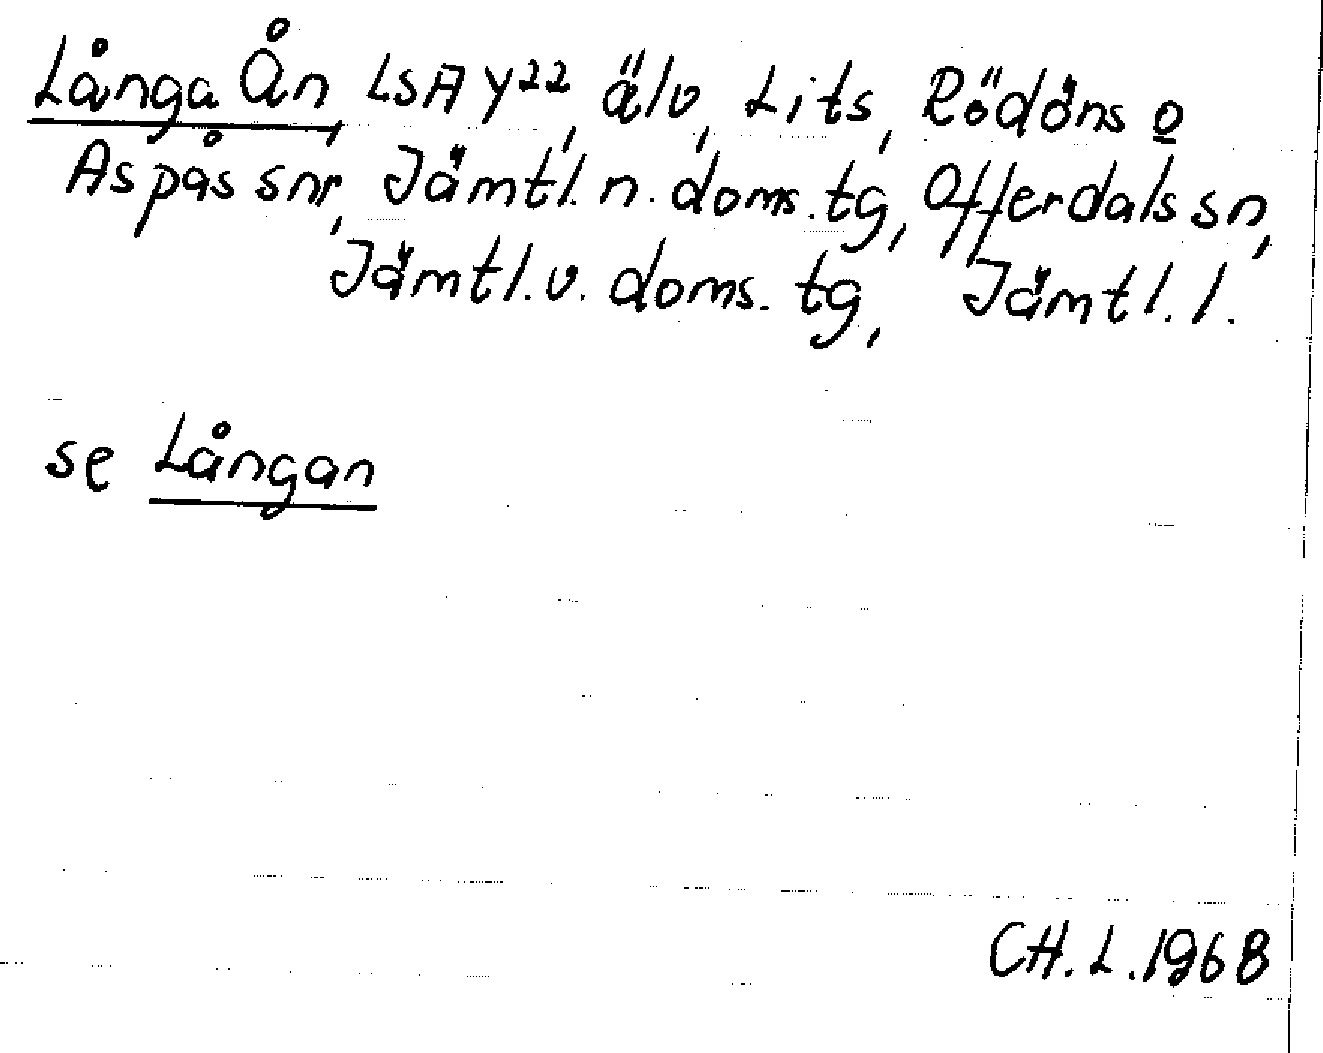 Långa Ån, LSA Y22, älv, Lits, Rödöns o
Aspås snr, Jämtl. n. doms. tg, Offerdals sn,
Jämtl. v. doms. tg, Jämtl. l.
se Långan
CH. L. 1968